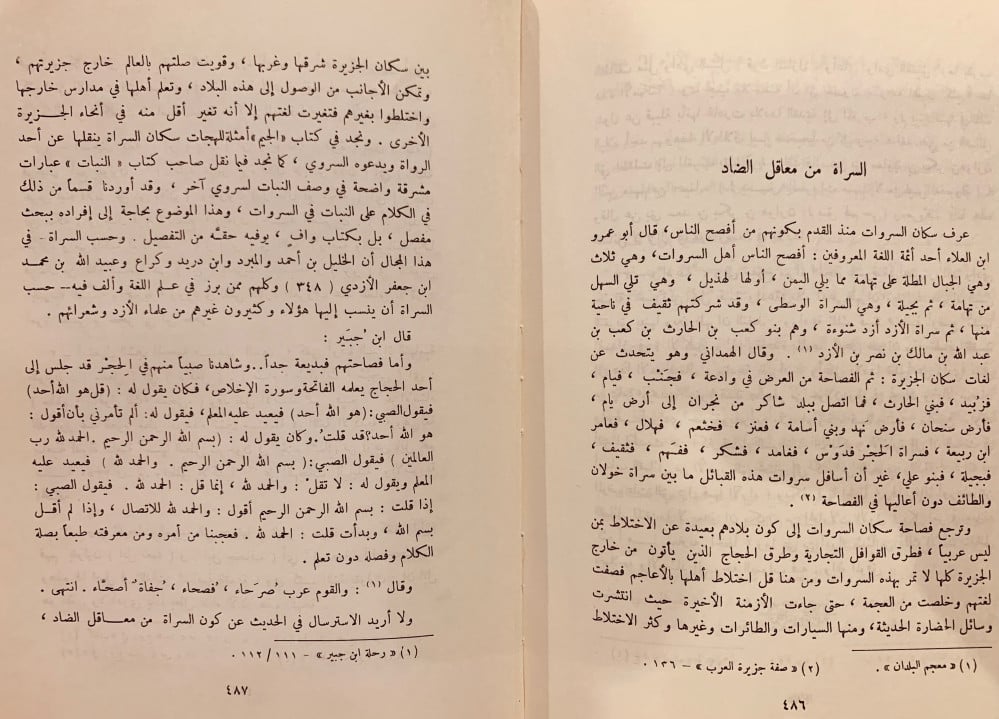 السراة من معاقل الضاد
عرف سكان السروات منذ القدم بكونهم من أفصح الناس، قال أبو عمرو
ابن العلاء أحد أئمة اللغة المعروفين : أفصح الناس أهل السروات، وهي ثلاث
وهي الجبال المطلة على تهامة مما يلي اليمن ، أولها لهذيل ، وهي تلي السهل
من تهامة ، ثم بجيلة ، وهي السراة الوسطى ، وقد شركتهم ثقيف في ناحية
منها ، ثم سراة الأزد أزد شنوءة ، وهم بنو كعب بن الحارث بن كعب بن
عبد الله بن مالك بن نصر بن الأزد (١) . وقال الهمداني وهو يتحدث عن
لغات سكان الجزيرة : ثم الفصاحة من العرض في وادعة ، فجَنْب ، فيام ،
فزُبيد ، فبني الحارث ، فما اتصل ببلد شاكر من نجران إلى أرض يام ،
فأرض سنحان ، فأرض نَهد وبني أسامة ، فعنز ، فخثعم ، فهلال ، فعامر
ابن ربيعة ، فسراة الحجر فدَوْس ، فغامد ، فشكر ، ففهم ، فثقيف ،
فبجيلة ، فبنو علي، غير أن أسافل سروات هذه القبائل ما بين سراة خولان
والطائف دون أعاليها في الفصاحة (٢)
وترجع فصاحة سكان السروات إلى كون بلادهم بعيدة عن الاختلاط بمن
ليس عربياً ، فطرق القوافل التجارية وطرق الحجاج الذين يأتون من خارج
الجزيرة كلها لا تمر بهذه السروات ومن هنا قل اختلاط أهلها بالأعاجم فصفت
لغتهم وخلصت من العجمة ، حتى جاءت الأزمنة الأخيرة حيث انتشرت
وسائل الحضارة الحديثة، ومنها السيارات والطائرات وغيرها وكثر الاختلاط
(١) « معجم البلدان » . (٢) « صفة جزيرة العرب » – ١٣٦ .
٤٨٦
بين سكان الجزيرة شرقها وغربها ، وقويت صلتهم بالعالم خارج جزيرتهم ،
وتمكن الأجانب من الوصول إلى هذه البلاد ، وتعلم أهلها في مدارس خارجها
واختلطوا بغيرهم فتغيرت لغتهم إلا أنه تغير أقل منه في أنحاء الجزيرة
الأخرى . ونجد في كتاب «الجيم» أمثلة للهجات سكان السراة ينقلها عن أحد
الرواة ويدعوه السروي ، كما نجد فيما نقل صاحب كتاب « النبات » عبارات
مشرقة واضحة في وصف النبات لسروي آخر ، وقد أوردنا قسماً من ذلك
في الكلام على النبات في السروات ، وهذا الموضوع بحاجة إلى إفراده ببحث
مفصل ، بل بكتاب وافٍ ، يوفيه حقه من التفصيل . وحسب السراة - في
هذا المجال أن الخليل بن أحمد والمبرد وابن دريد وكراع وعبيد الله بن محمد
ابن جعفر الأزدي ( ٣٤٨ ) وكلهم ممن برز في علم اللغة وألف فيه – حسب
السراة أن ينسب إليها هؤلاء وكثيرون غيرهم من علماء الأزد وشعرائهم .
قال ابن جُبَير :
وأما فصاحتهم فبديعة جداً.. وشاهدنا صبياً منهم في الحِجْر قد جلس إلى
أحد الحجاج يعلمه الفاتحة وسورة الإخلاص، فكان يقول له : (قل هو الله أحد)
فيقول الصبي: (هو الله أحد) فيعيد عليه المعلم، فيقول له: ألم تأمرني بأن أقول :
هو الله أحد؟ قد قلتُ. وكان يقول له : (بسم الله الرحمن الرحيم . الحمد لله رب
العالمين ) فيقول الصبي: ( بسم الله الرحمن الرحيم . والحمد لله ) فيعيد عليه
المعلم ويقول له : لا تقلْ : والحمد لله ، إنما قل : الحمد لله . فيقول الصبي :
إذا قلت : بسم الله الرحمن الرحيم أقول : والحمد لله للاتصال ، وإذا لم أقل
بسم الله ، وبدأت قلت : الحمد لله . فعجبنا من أمره ومن معرفته طبعاً بصلة
الكلام وفصله دون تعلم .
وقال (١) : والقوم عرب صُرَحاء ، فُصحاء ، جُفاةٌ أصحَّاء . انتهى .
ولا أريد الاسترسال في الحديث عن كون السراة من معاقل الضاد ،
(١) « رحلة ابن جبير » – ١١١ / ١١٢ .
٤٨٧